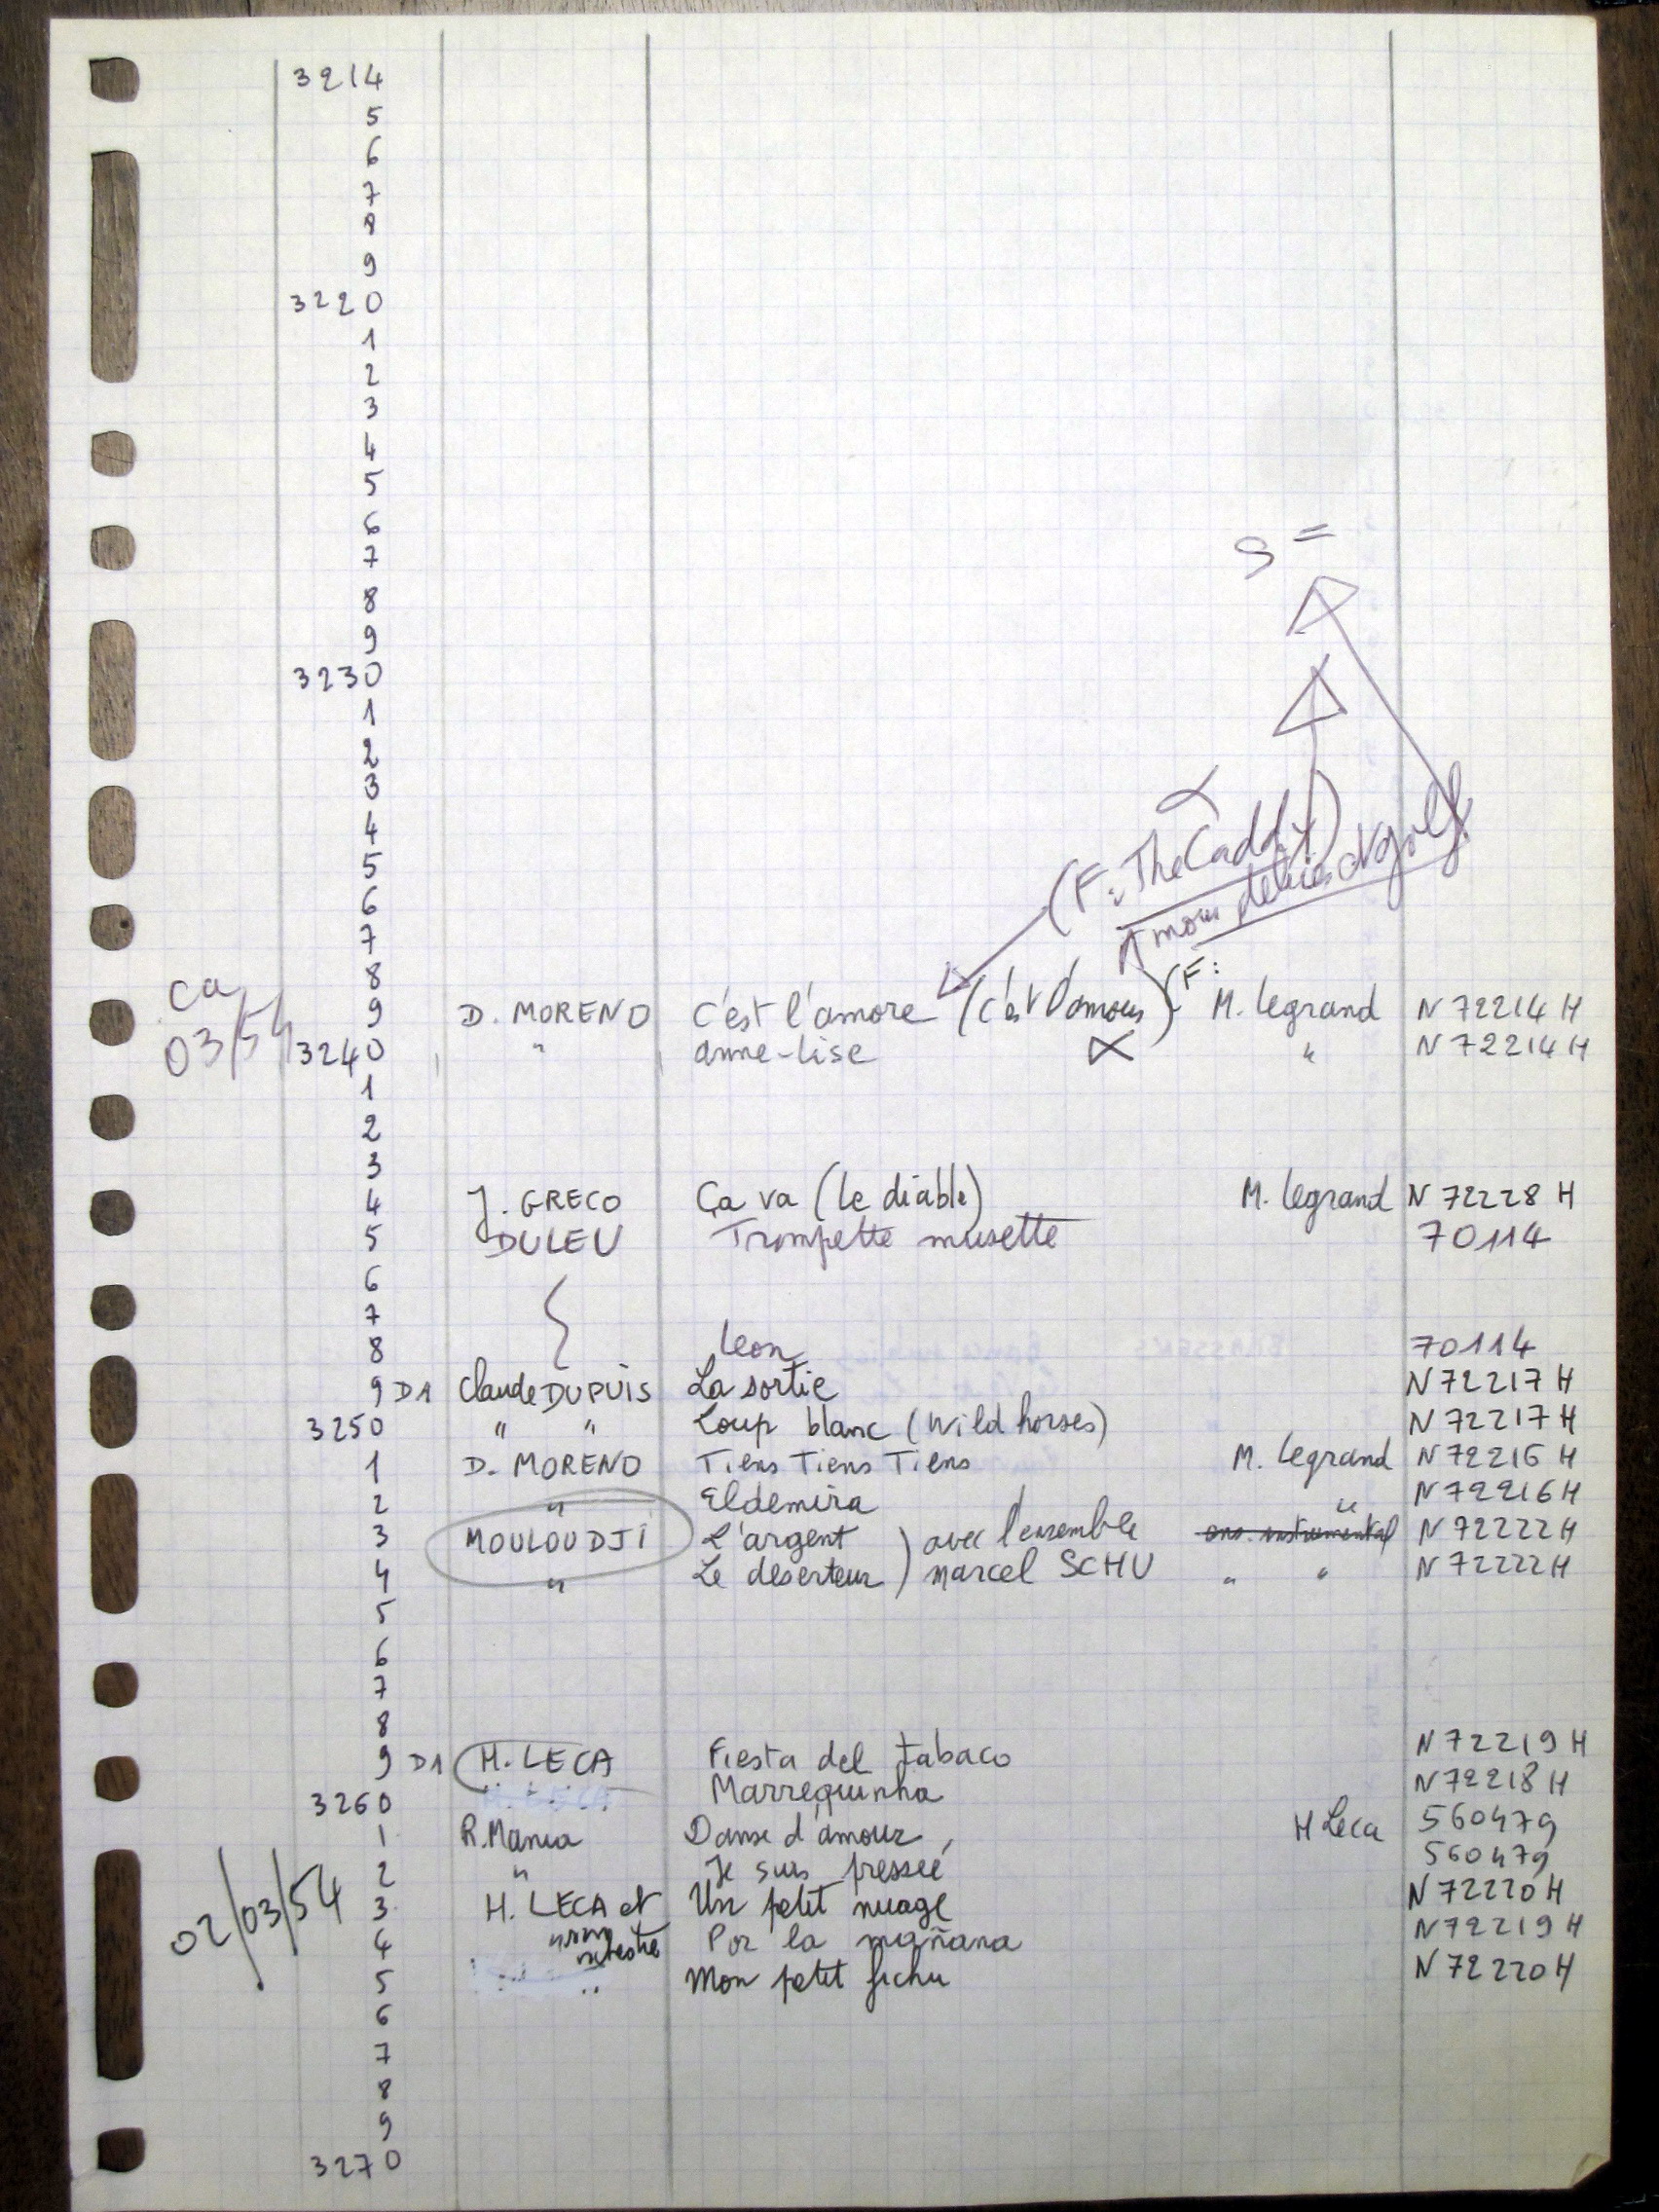 3214
5
6
7
8
9
3220
1
2
3
4
5
6
7
8
9
3230
1
2
3
4
5
6
7
8
S =
(F: The Caddy)
Amour délices et golf
ca
03/54
9 D. MORENO C'est l'amore (c'est l'amour) (F: M. Legrand N 72214 H
3240 " anne-lise " N 72214 H
1
2
3
4 J. GRECO Ça va (le diable) M. Legrand N 72228 H
5 DULEU Trompette musette 70114
6
7
8 Leon 70114
9 D1 Claude DUPUIS La sortie N 72217 H
3250 " " Loup blanc (Wild horses) N 72217 H
1 D. MORENO Tiens Tiens Tiens M. Legrand N 72216 H
2 " Eldemira " N 72216 H
3 MOULOUDJI L'argent ) avec l'ensemble ens. instrumental N 72222 H
4 " Le deserteur ) Marcel SCHU " " N 72222 H
5
6
7
8
9 D1 H. LECA Fiesta del tabaco N 72219 H
3260 Marrequinha N 72218 H
1 R. Mania Danse d'amour H Leca 560479
2 " Je suis pressée 560479
02/03/54
3 H. LECA et Un petit nuage N 72220 H
son orchestre
4 Por la mañana N 72219 H
5 " Mon petit fichu N 72220 H
6
7
8
9
3270